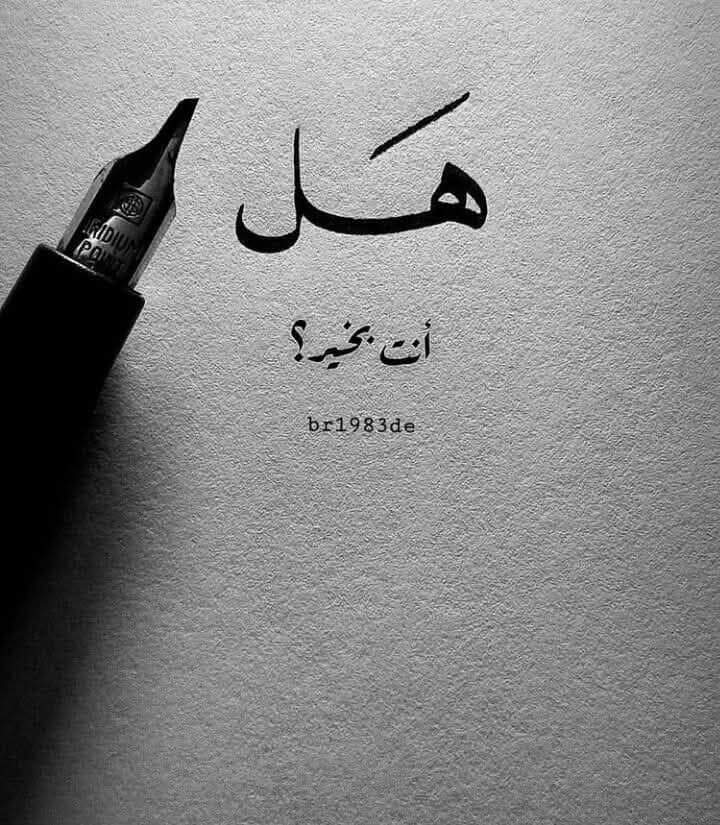 هَل
أنت بخير؟
br1983de
IRIDIUM
POINT